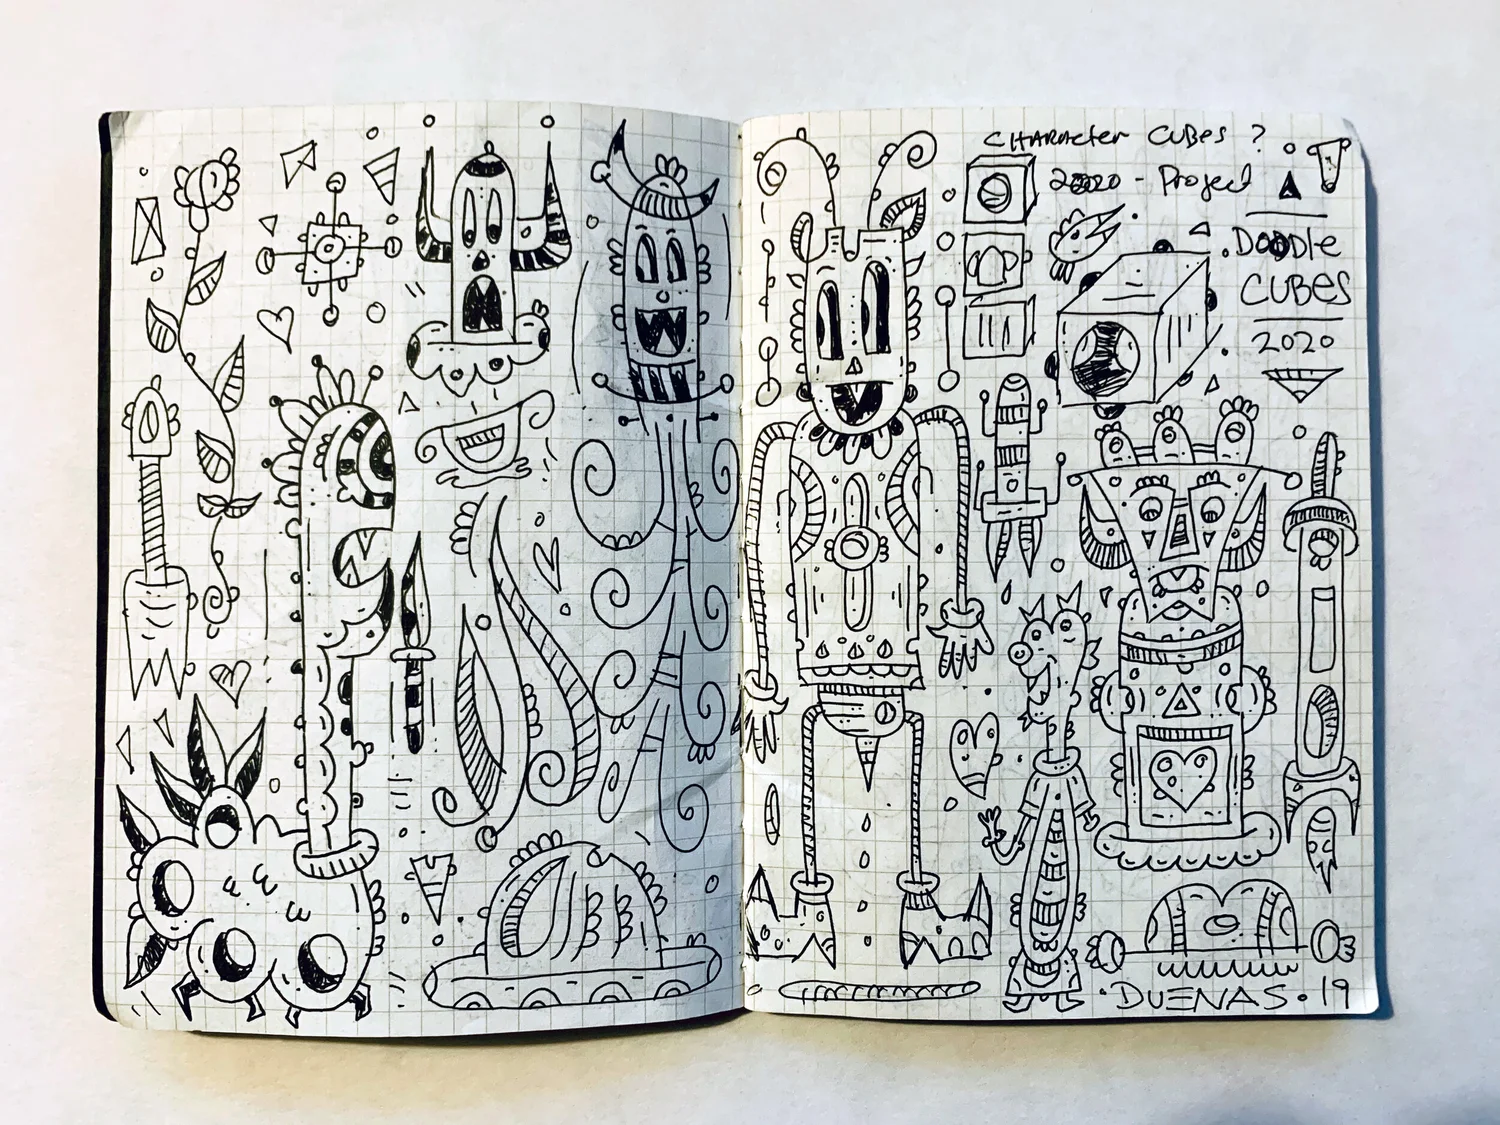 CHARACTER CUBES ?
2020 - Project
DOODLE
CUBES
2020
•DUENAS•19